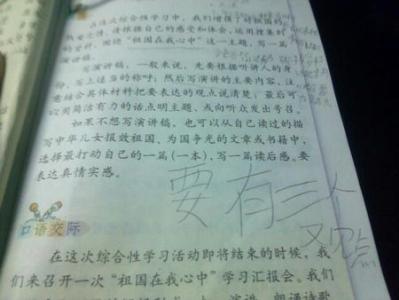 在这次综合性学习中，我们增强了对祖国的
热爱之情。请根据自己的感受和体会，运用搜集到
的资料，围绕“祖国在我心中”这一主题，写一篇
演讲稿。
写演讲稿，一般来说，先要根据听讲人的身
份，写上适当的称呼；然后写演讲的主要内容，注
意结合具体材料把要表达的观点说清楚；最后可
以用简洁有力的话点明主题，或向听众发出号召。
如果不想写演讲稿，也可以从自己读过的描
写中华儿女报效祖国、为国争光的文章或书籍中，
选择最打动自己的一篇（一本），写一篇读后感。要
表达真情实感。
要有三个
观点
口语交际
在这次综合性学习活动即将结束的时候，我
们来召开一次“祖国在我心中”学习汇报会。我们